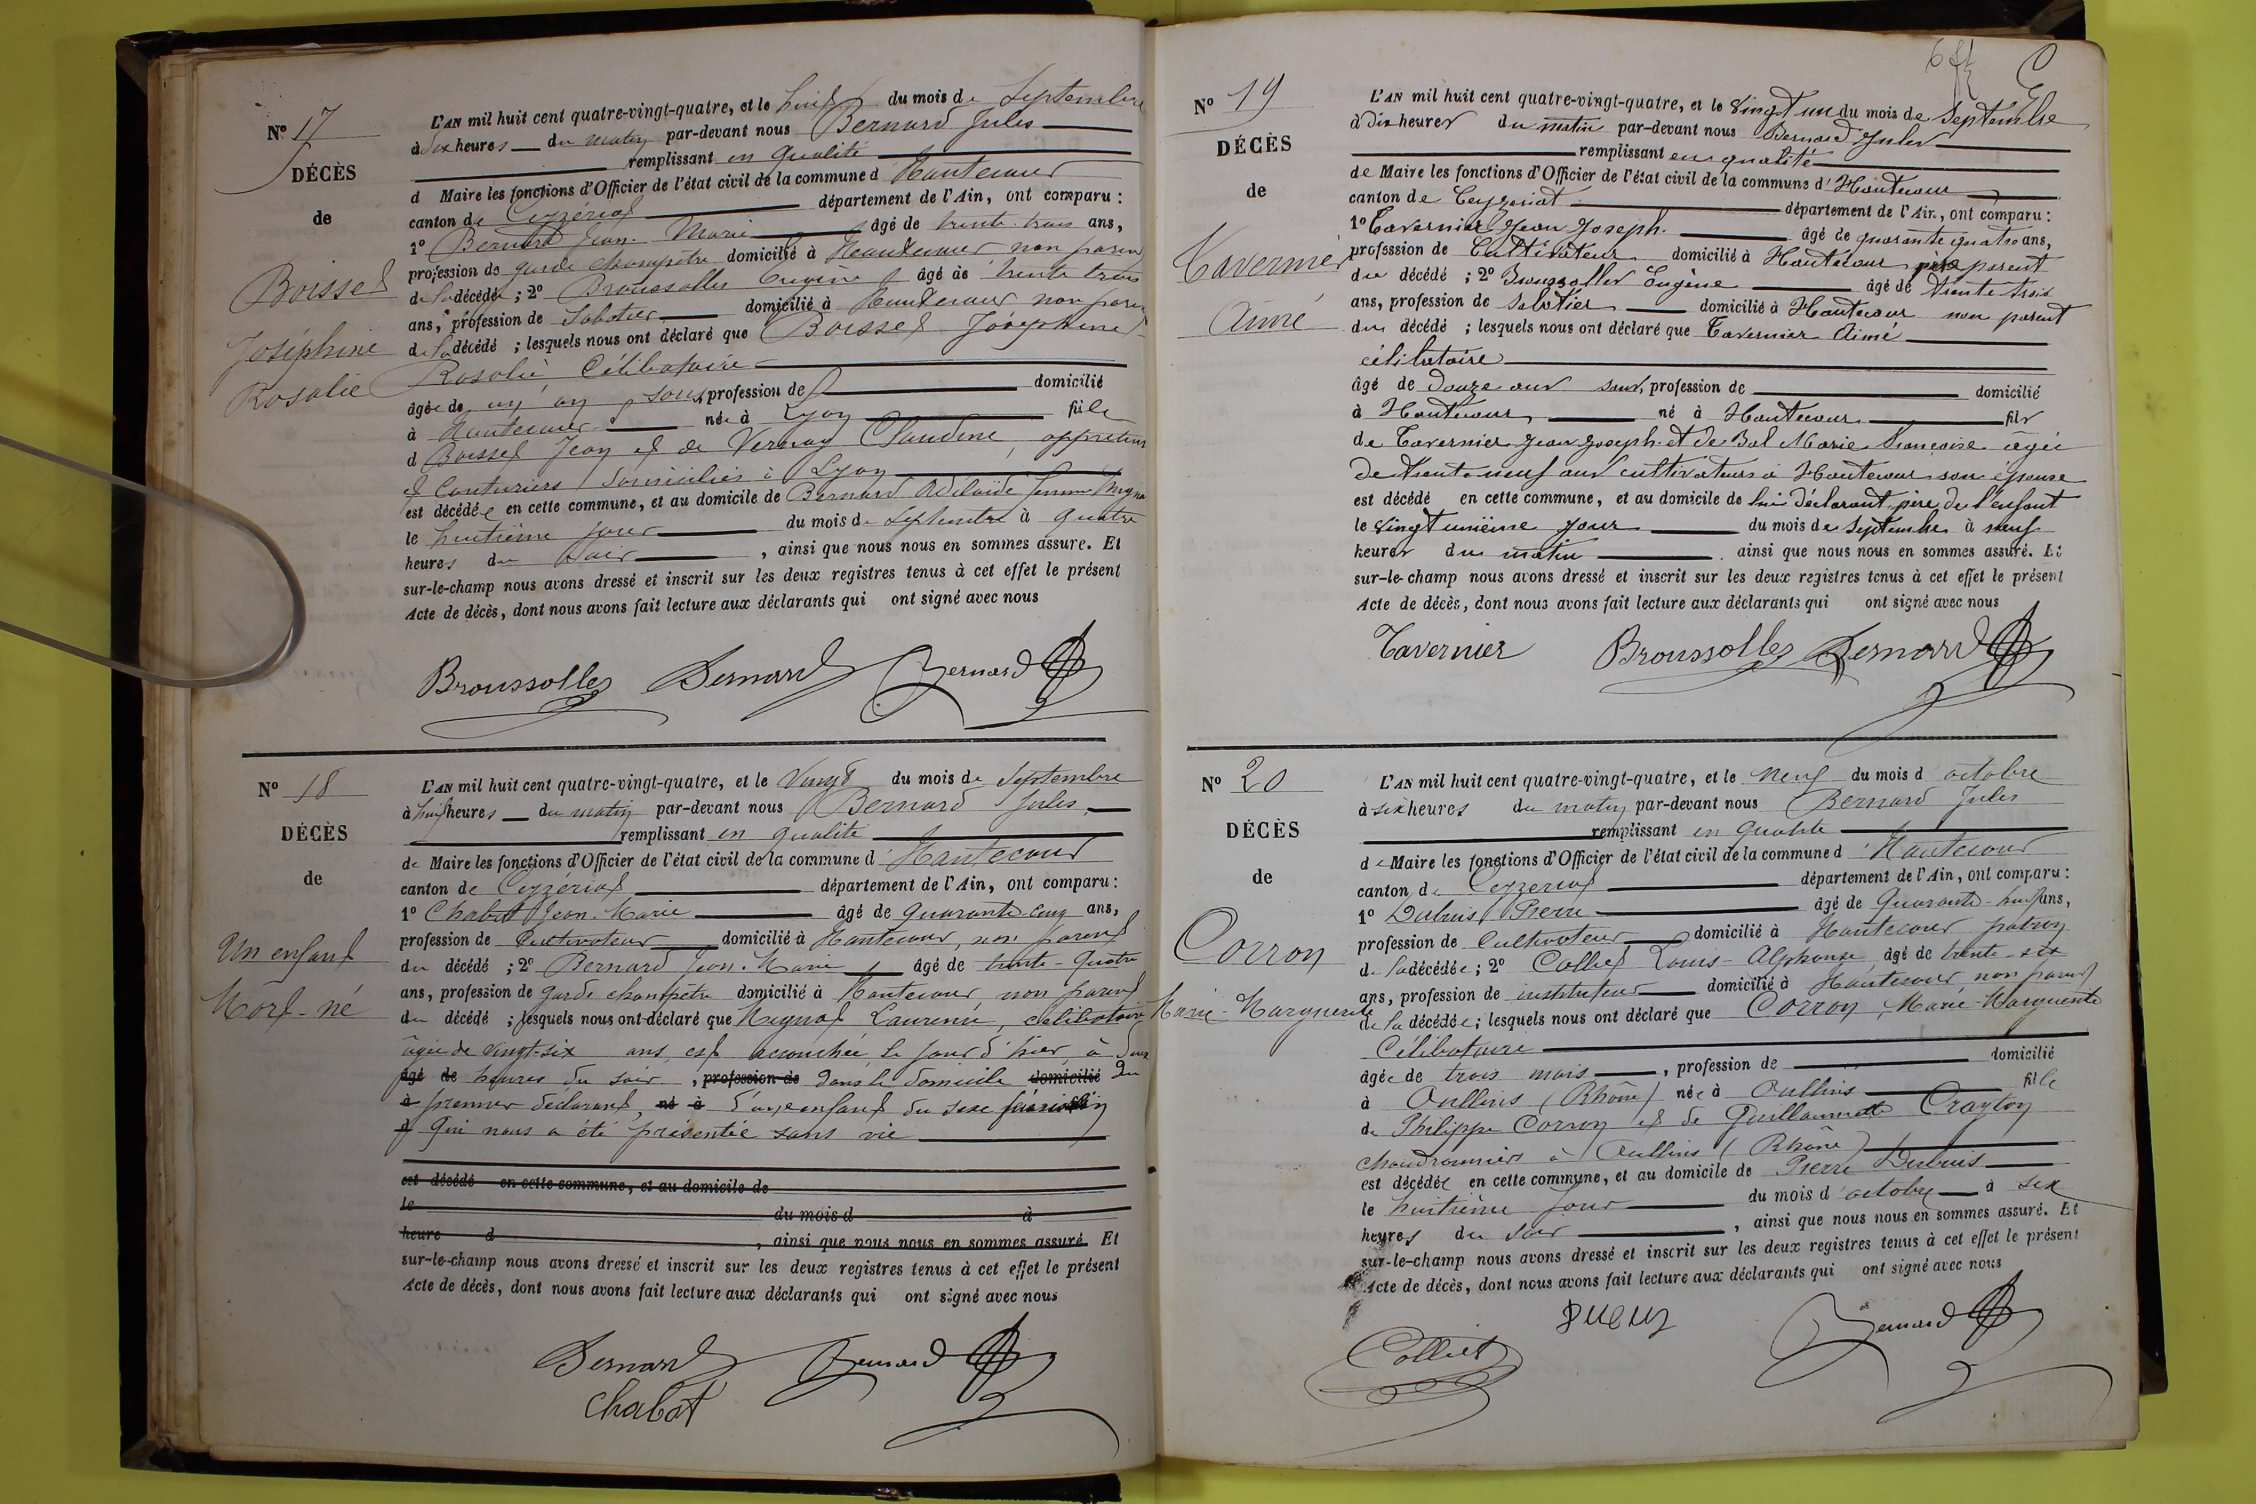 Nº 17
DÉCÈS
de
Boissel
Joséphine
Rosalie
L'AN mil huit cent quatre-vingt-quatre, et le huit du mois de Septembre
à dix heures du matin par-devant nous Bernard Jules
remplissant en qualité
d Maire les fonctions d'Officier de l'état civil de la commune d'Hautecour
canton de Ceyzériat département de l'Ain, ont comparu :
1º Bernard Jean-Marie âgé de trente-trois ans,
profession de garde champêtre domicilié à Hautecour non parent
de la décédée ; 2º Broussolles Eugène âgé de trente trois
ans, profession de Sabotier domicilié à Hautecour non parent
de la décédé ; lesquels nous ont déclaré que Boissel Joséphine
Rosalie Célibataire
âgée de un an sans profession de domicilié
à Hautecour née à Lyon fille
d Boissel Jean et de Claudine,
et Couturière domiciliés à Lyon
est décédée en cette commune, et au domicile de Bernard Adélaïde femme
le huitième jour du mois de Septembre à quatre
heures du soir , ainsi que nous nous en sommes assuré. Et
sur-le-champ nous avons dressé et inscrit sur les deux registres tenus à cet effet le présent
Acte de décès, dont nous avons fait lecture aux déclarants qui ont signé avec nous
Broussolles Bernard Bernard
Nº 18
DÉCÈS
de
Un enfant
Mort-né
L'AN mil huit cent quatre-vingt-quatre, et le Vingt du mois de Septembre
à huit heures du matin par-devant nous Bernard Jules
remplissant en qualité
de Maire les fonctions d'Officier de l'état civil de la commune d'Hautecour
canton de Ceyzériat département de l'Ain, ont comparu :
1º Chabat Jean-Marie âgé de Quarante-cinq ans,
profession de Cultivateur domicilié à Hautecour, non parent
du décédé ; 2º Bernard Jean-Marie âgé de trente-quatre
ans, profession de garde champêtre domicilié à Hautecour non parent
du décédé ; lesquels nous ont déclaré que Mignot Laurence, célibataire
âgée de vingt-six ans, est accouchée le jour d'hier, à deux
âgé de heures du soir , profession de dans le domicile domicilié du
à premier déclarant, né à d'un enfant du sexe
d qui nous a été présentée sans vie
est décédé en cette commune, et au domicile de
le du mois d à
heure d , ainsi que nous nous en sommes assuré. Et
sur-le-champ nous avons dressé et inscrit sur les deux registres tenus à cet effet le présent
Acte de décès, dont nous avons fait lecture aux déclarants qui ont signé avec nous
Bernard Bernard
Chabat
Nº 19
DÉCÈS
de
Tavernier
Aimé
L'AN mil huit cent quatre-vingt-quatre, et le vingt un du mois de Septembre
à dix heures du matin par-devant nous Bernard Jules
remplissant en qualité
de Maire les fonctions d'Officier de l'état civil de la commune d'Hautecour
canton de Ceyzeriat département de l'Ain, ont comparu :
1º Tavernier Jean Joseph âgé de quarante quatre ans,
profession de Cultivateur domicilié à Hautecour père parent
du décédé ; 2º Broussolles Eugène âgé de trente-trois
ans, profession de sabotier domicilié à Hautecour non parent
du décédé ; lesquels nous ont déclaré que Tavernier Aimé
célibataire
âgé de douze ans sans profession de domicilié
à Hautecour né à Hautecour fils
de Tavernier Jean Joseph et de Bal Marie Françoise âgée
de trente-neuf ans cultivateurs à Hautecour son épouse
est décédé en cette commune, et au domicile de lui déclarant père de l'enfant
le vingt unième jour du mois de Septembre à neuf
heures du matin ainsi que nous nous en sommes assuré. Et
sur-le-champ nous avons dressé et inscrit sur les deux registres tenus à cet effet le présent
Acte de décès, dont nous avons fait lecture aux déclarants qui ont signé avec nous
Tavernier Broussolles Bernard
Nº 20
DÉCÈS
de
Corron
Marie-Marguerite
L'AN mil huit cent quatre-vingt-quatre, et le neuf du mois d'octobre
à six heures du matin par-devant nous Bernard Jules
remplissant en qualité
de Maire les fonctions d'Officier de l'état civil de la commune d'Hautecour
canton de Ceyzeriat département de l'Ain, ont comparu :
1º Dubuis Pierre âgé de Quarante-huit ans,
profession de Cultivateur domicilié à Hautecour patron
de la décédée ; 2º Colliet Louis-Alphonse, âgé de trente-six
ans, profession de instituteur domicilié à Hautecour non parent
de la décédée ; lesquels nous ont déclaré que Corron, Marie-Marguerite
Célibataire
âgée de trois mois , profession de domicilié
à Oullins (Rhône) née à Oullins fille
de Philippe Corron et de Guillaumette
chaudronniers à Oullins (Rhône)
est décédée en cette commune, et au domicile de Pierre Dubuis
le huitième jour du mois d'octobre à six
heures du soir , ainsi que nous nous en sommes assuré. Et
sur-le-champ nous avons dressé et inscrit sur les deux registres tenus à cet effet le présent
Acte de décès, dont nous avons fait lecture aux déclarants qui ont signé avec nous
Colliet Bernard